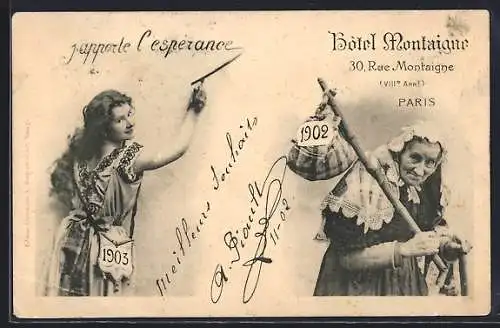 j'apporte l'espérance
Hôtel Montaigne
30, Rue Montaigne
(VIIIe Arrt)
PARIS
1902
1903
meilleurs souhaits
11-02